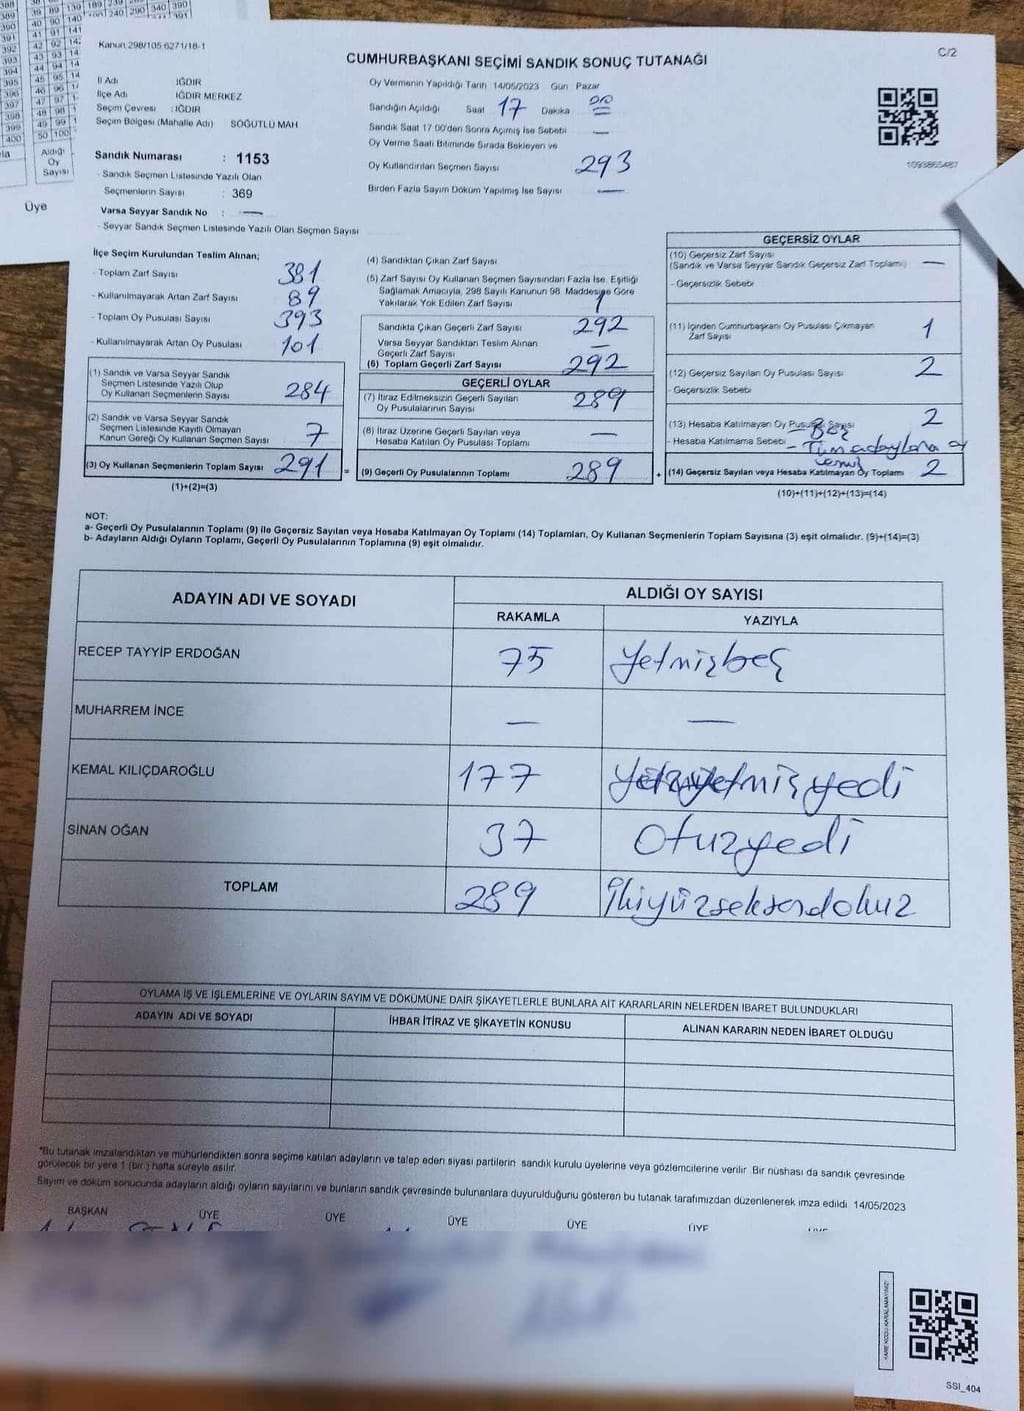 Kanun 298/105 6271/18-1
C/2
CUMHURBAŞKANI SEÇİMİ SANDIK SONUÇ TUTANAĞI
İl Adı : IĞDIR
İlçe Adı : IĞDIR MERKEZ
Seçim Çevresi : IĞDIR
Seçim Bölgesi (Mahalle Adı) SOĞUTLU MAH
Sandık Numarası : 1153
- Sandık Seçmen Listesinde Yazılı Olan
Seçmenlerin Sayısı : 369
Varsa Seyyar Sandık No : —
- Seyyar Sandık Seçmen Listesinde Yazılı Olan Seçmen Sayısı
Oy Vermenin Yapıldığı Tarih 14/05/2023 Gün Pazar
Sandığın Açıldığı Saat 17 Dakika 00
Sandık Saat 17 00'den Sonra Açılmış İse Sebebi —
Oy Verme Saati Bitiminde Sırada Bekleyen ve
Oy Kullandırılan Seçmen Sayısı 293
Birden Fazla Sayım Döküm Yapılmış İse Sayısı —
1093865487
İlçe Seçim Kurulundan Teslim Alınan;
- Toplam Zarf Sayısı 381
- Kullanılmayarak Artan Zarf Sayısı 89
- Toplam Oy Pusulası Sayısı 393
- Kullanılmayarak Artan Oy Pusulası 101
(1) Sandık ve Varsa Seyyar Sandık
Seçmen Listesinde Yazılı Olup
Oy Kullanan Seçmenlerin Sayısı 284
(2) Sandık ve Varsa Seyyar Sandık
Seçmen Listesinde Kayıtlı Olmayan
Kanun Gereği Oy Kullanan Seçmen Sayısı 7
(3) Oy Kullanan Seçmenlerin Toplam Sayısı 291 =
(1)+(2)=(3)
(4) Sandıktan Çıkan Zarf Sayısı
(5) Zarf Sayısı Oy Kullanan Seçmen Sayısından Fazla İse, Eşitliği
Sağlamak Amacıyla, 298 Sayılı Kanunun 98. Maddesine Göre
Yakılarak Yok Edilen Zarf Sayısı 1
Sandıkta Çıkan Geçerli Zarf Sayısı 292
Varsa Seyyar Sandıktan Teslim Alınan
Geçerli Zarf Sayısı —
(6) Toplam Geçerli Zarf Sayısı 292
GEÇERLİ OYLAR
(7) İtiraz Edilmeksizin Geçerli Sayılan
Oy Pusulalarının Sayısı 289
(8) İtiraz Üzerine Geçerli Sayılan veya
Hesaba Katılan Oy Pusulası Toplamı —
(9) Geçerli Oy Pusulalarının Toplamı 289 +
GEÇERSİZ OYLAR
(10) Geçersiz Zarf Sayısı
(Sandık ve Varsa Seyyar Sandık Geçersiz Zarf Toplamı) —
- Geçersizlik Sebebi
(11) İçinden Cumhurbaşkanı Oy Pusulası Çıkmayan
Zarf Sayısı 1
(12) Geçersiz Sayılan Oy Pusulası Sayısı 2
- Geçersizlik Sebebi
(13) Hesaba Katılmayan Oy Pusulası Sayısı 2
- Hesaba Katılmama Sebebi - Boş
- Tüm adaylara oy
vermiş
(14) Geçersiz Sayılan veya Hesaba Katılmayan Oy Toplamı 2
(10)+(11)+(12)+(13)=(14)
NOT:
a- Geçerli Oy Pusulalarının Toplamı (9) ile Geçersiz Sayılan veya Hesaba Katılmayan Oy Toplamı (14) Toplamları, Oy Kullanan Seçmenlerin Toplam Sayısına (3) eşit olmalıdır. (9)+(14)=(3)
b- Adayların Aldığı Oyların Toplamı, Geçerli Oy Pusulalarının Toplamına (9) eşit olmalıdır.
ADAYIN ADI VE SOYADI
ALDIĞI OY SAYISI
RAKAMLA YAZIYLA
RECEP TAYYİP ERDOĞAN 75 Yetmişbeş
MUHARREM İNCE — —
KEMAL KILIÇDAROĞLU 177 Yüzyetmişyedi
SİNAN OĞAN 37 Otuzyedi
TOPLAM 289 İkiyüzseksendokuz
OYLAMA İŞ VE İŞLEMLERİNE VE OYLARIN SAYIM VE DÖKÜMÜNE DAİR ŞİKAYETLERLE BUNLARA AİT KARARLARIN NELERDEN İBARET BULUNDUKLARI
ADAYIN ADI VE SOYADI İHBAR İTİRAZ VE ŞİKAYETİN KONUSU ALINAN KARARIN NEDEN İBARET OLDUĞU
*Bu tutanak imzalandıktan ve mühürlendikten sonra seçime katılan adayların ve talep eden siyasi partilerin sandık kurulu üyelerine veya gözlemcilerine verilir. Bir nüshası da sandık çevresinde
görülecek bir yere 1 (bir ) hafta süreyle asılır.
Sayım ve döküm sonucunda adayların aldığı oyların sayılarını ve bunların sandık çevresinde bulunanlara duyurulduğunu gösteren bu tutanak tarafımızdan düzenlenerek imza edildi. 14/05/2023
BAŞKAN ÜYE ÜYE ÜYE ÜYE ÜYE
SSI_404
Aldığı
Oy
Sayısı
Üye